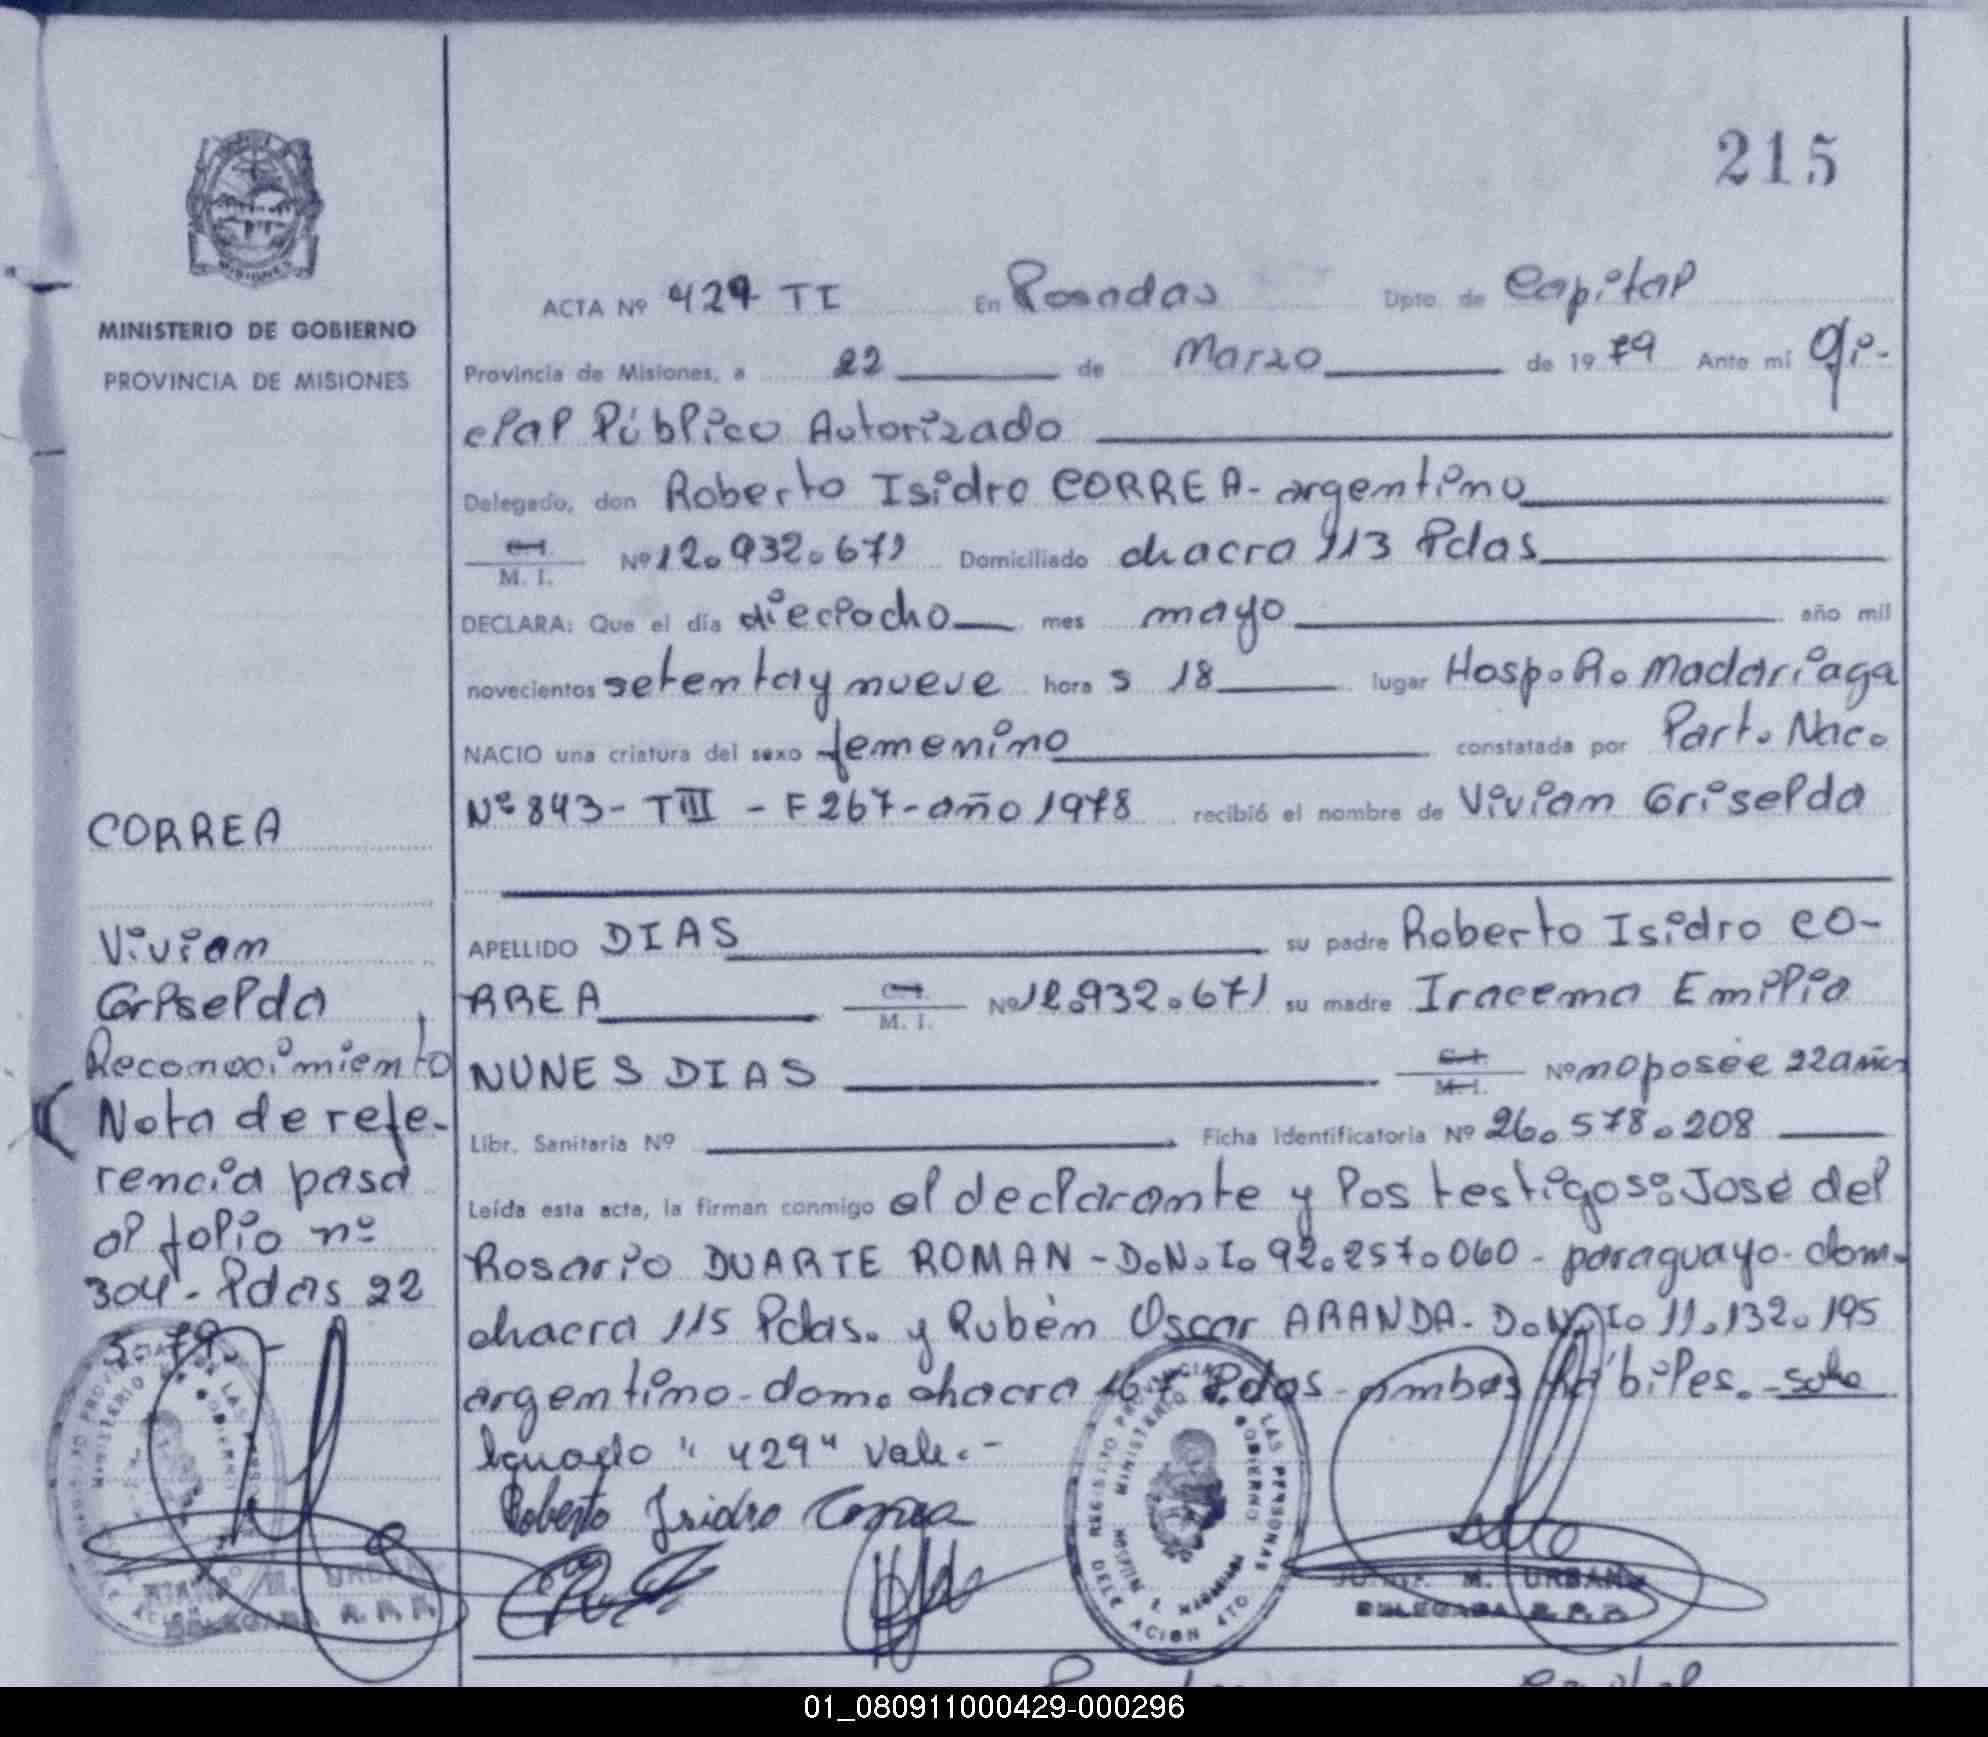 215
ACTA Nº 429 TI En Posadas Dpto. de Capital
MINISTERIO DE GOBIERNO
PROVINCIA DE MISIONES
Provincia de Misiones, a 22 de Marzo de 1979 Ante mí Ofi-
cial Público Autorizado
Delegado, don Roberto Isidro CORREA - argentino
C.I.
M. I. Nº 12.932.671 Domiciliado chacra 113 Pdas
DECLARA: Que el día dieciocho mes mayo año mil
novecientos setenta y nueve hora s 18 lugar Hosp. R. Madariaga
NACIO una criatura del sexo femenino constatada por Part. Nac.
Nº 843 - TIII - F 267 - año 1978 recibió el nombre de Vivian Griselda
CORREA
APELLIDO DIAS su padre Roberto Isidro CO-
Vivian
RREA C.I. M. I. Nº 12.932.671 su madre Iracema Emilia
Griselda
NUNES DIAS C.I. M.I. Nº no posee 22 años
Reconocimiento
Libr. Sanitaria Nº Ficha Identificatoria Nº 26.578.208
Nota de refe-
rencia pasa
al folio nº
304 - Pdas 22
3-79.-
Leída esta acta, la firman conmigo el declarante y los testigos: José del
Rosario DUARTE ROMAN - D.N.I. 92.257.060 - paraguayo - dom.
chacra 115 Pdas. y Rubén Oscar ARANDA - D.N.I. 11.132.195
argentino - dom. chacra 167 Pdas - ambos hábiles. - sobre
"429" Vale. -
Roberto Isidro Correa
REGISTRO PROVINCIAL DE LAS PERSONAS
MINISTERIO DE GOBIERNO
DELEGACION 4TO.
M. URBANO
DELEGADA R. P. P.
01_080911000429-000296